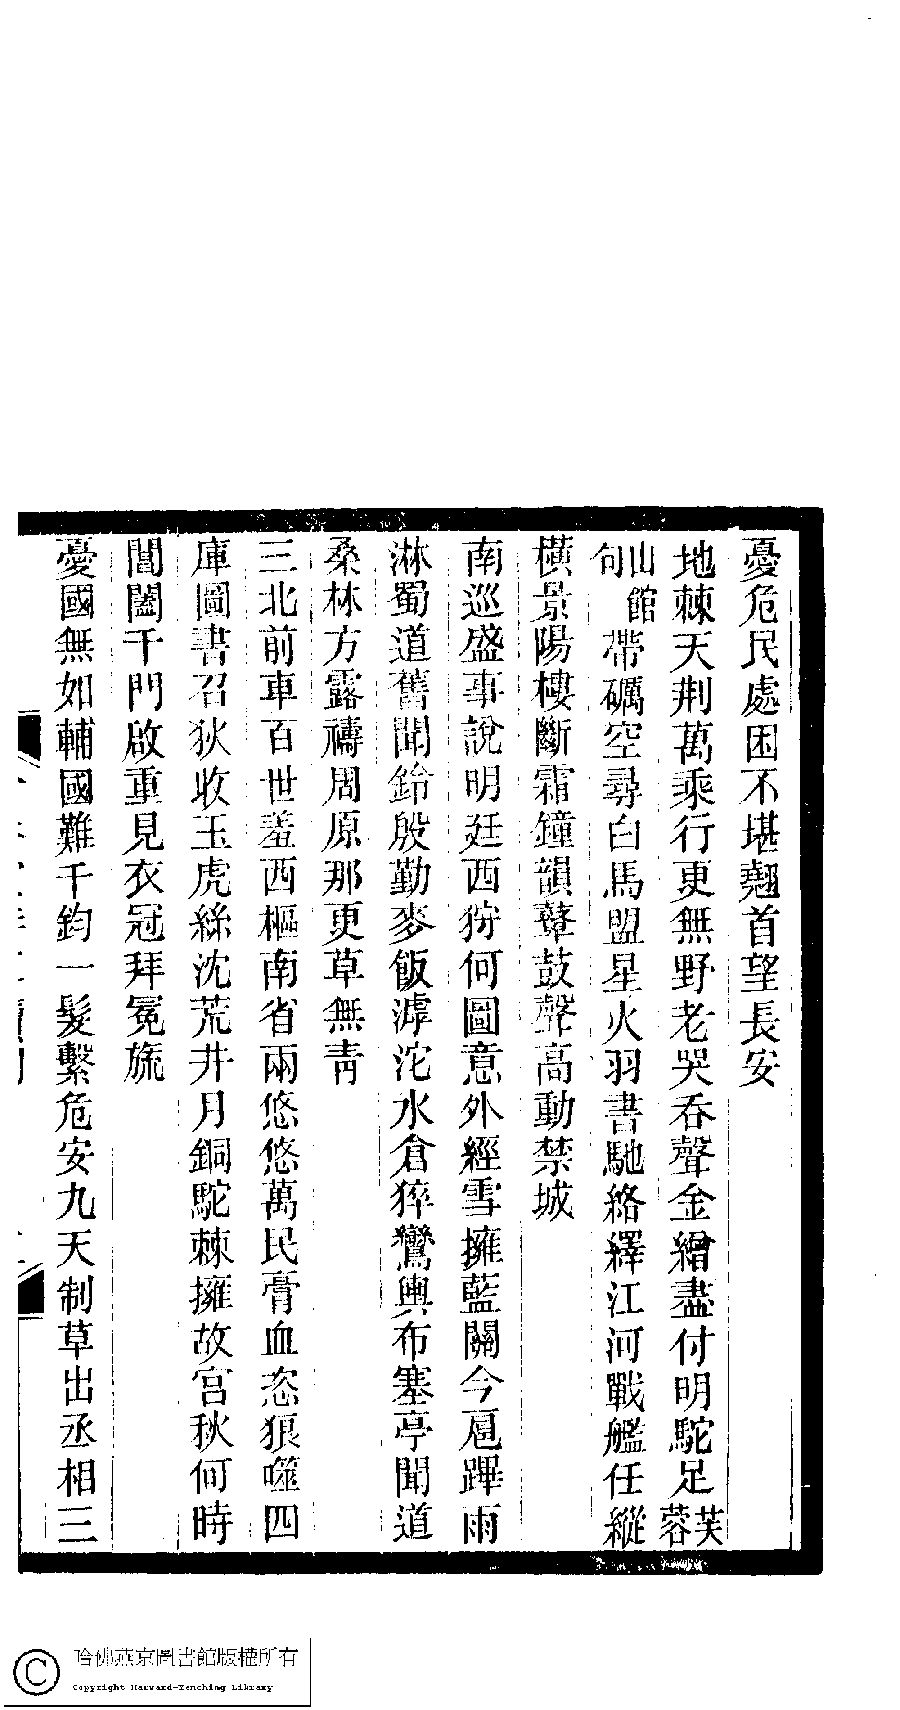 憂危民處困不堪翹首望長安
地棘天荆萬乘行更無野老哭吞聲金繒盡付明駝足芙蓉
山館句帶礪空尋白馬盟星火羽書馳絡繹江河戰艦任縱
橫景陽樓斷霜鐘韻鼙鼓聲高動禁城
南巡盛事說明廷西狩何圖意外經雪擁藍關今扈蹕雨
淋蜀道舊聞鈴殷勤麥飯滹沱水倉猝鸞輿布塞亭聞道
桑林方露禱周原那更草無青
三北前車百世羞西樞南省兩悠悠萬民膏血恣狼噬四
庫圖書召狄收玉虎絲沈荒井月銅駝棘擁故宮秋何時
閶闔千門啟重見衣冠拜冕旒
憂國無如輔國難千鈞一髮繫危安九天制草出丞相三
哈佛燕京圖書館版權所有
Copyright Harvard-Yenching Library